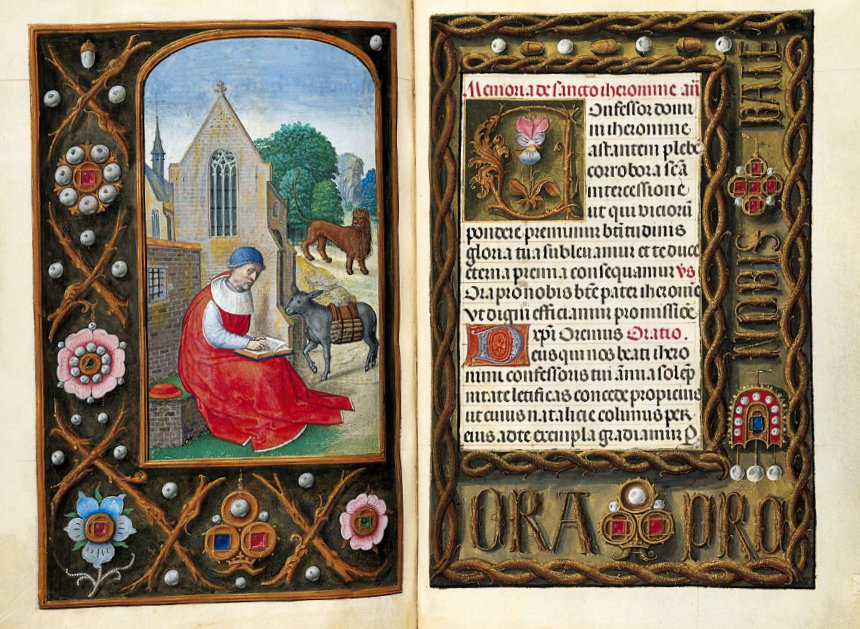 Memoria de sancto iheronime añ
Confessor domi
ni iheronime
astantem plebē
corrobora scā
intercessionē
ut qui viciorū
pondere premimur btītudinis
gloria tua subleuamur et te duce
eterna premia consequamur Vs
Ora pro nobis btē pater iheronime
Vt digni efficiamur promissiōe
xpī Oremus Oratio.
Deus qui nos beati ihero
nimi confessoris tui ānua solēp
nitate letificas concede propicius
ut cuius natalicia colimus per
eius ad te exempla gradiamur P
ORA PRO
NOBIS
BATE